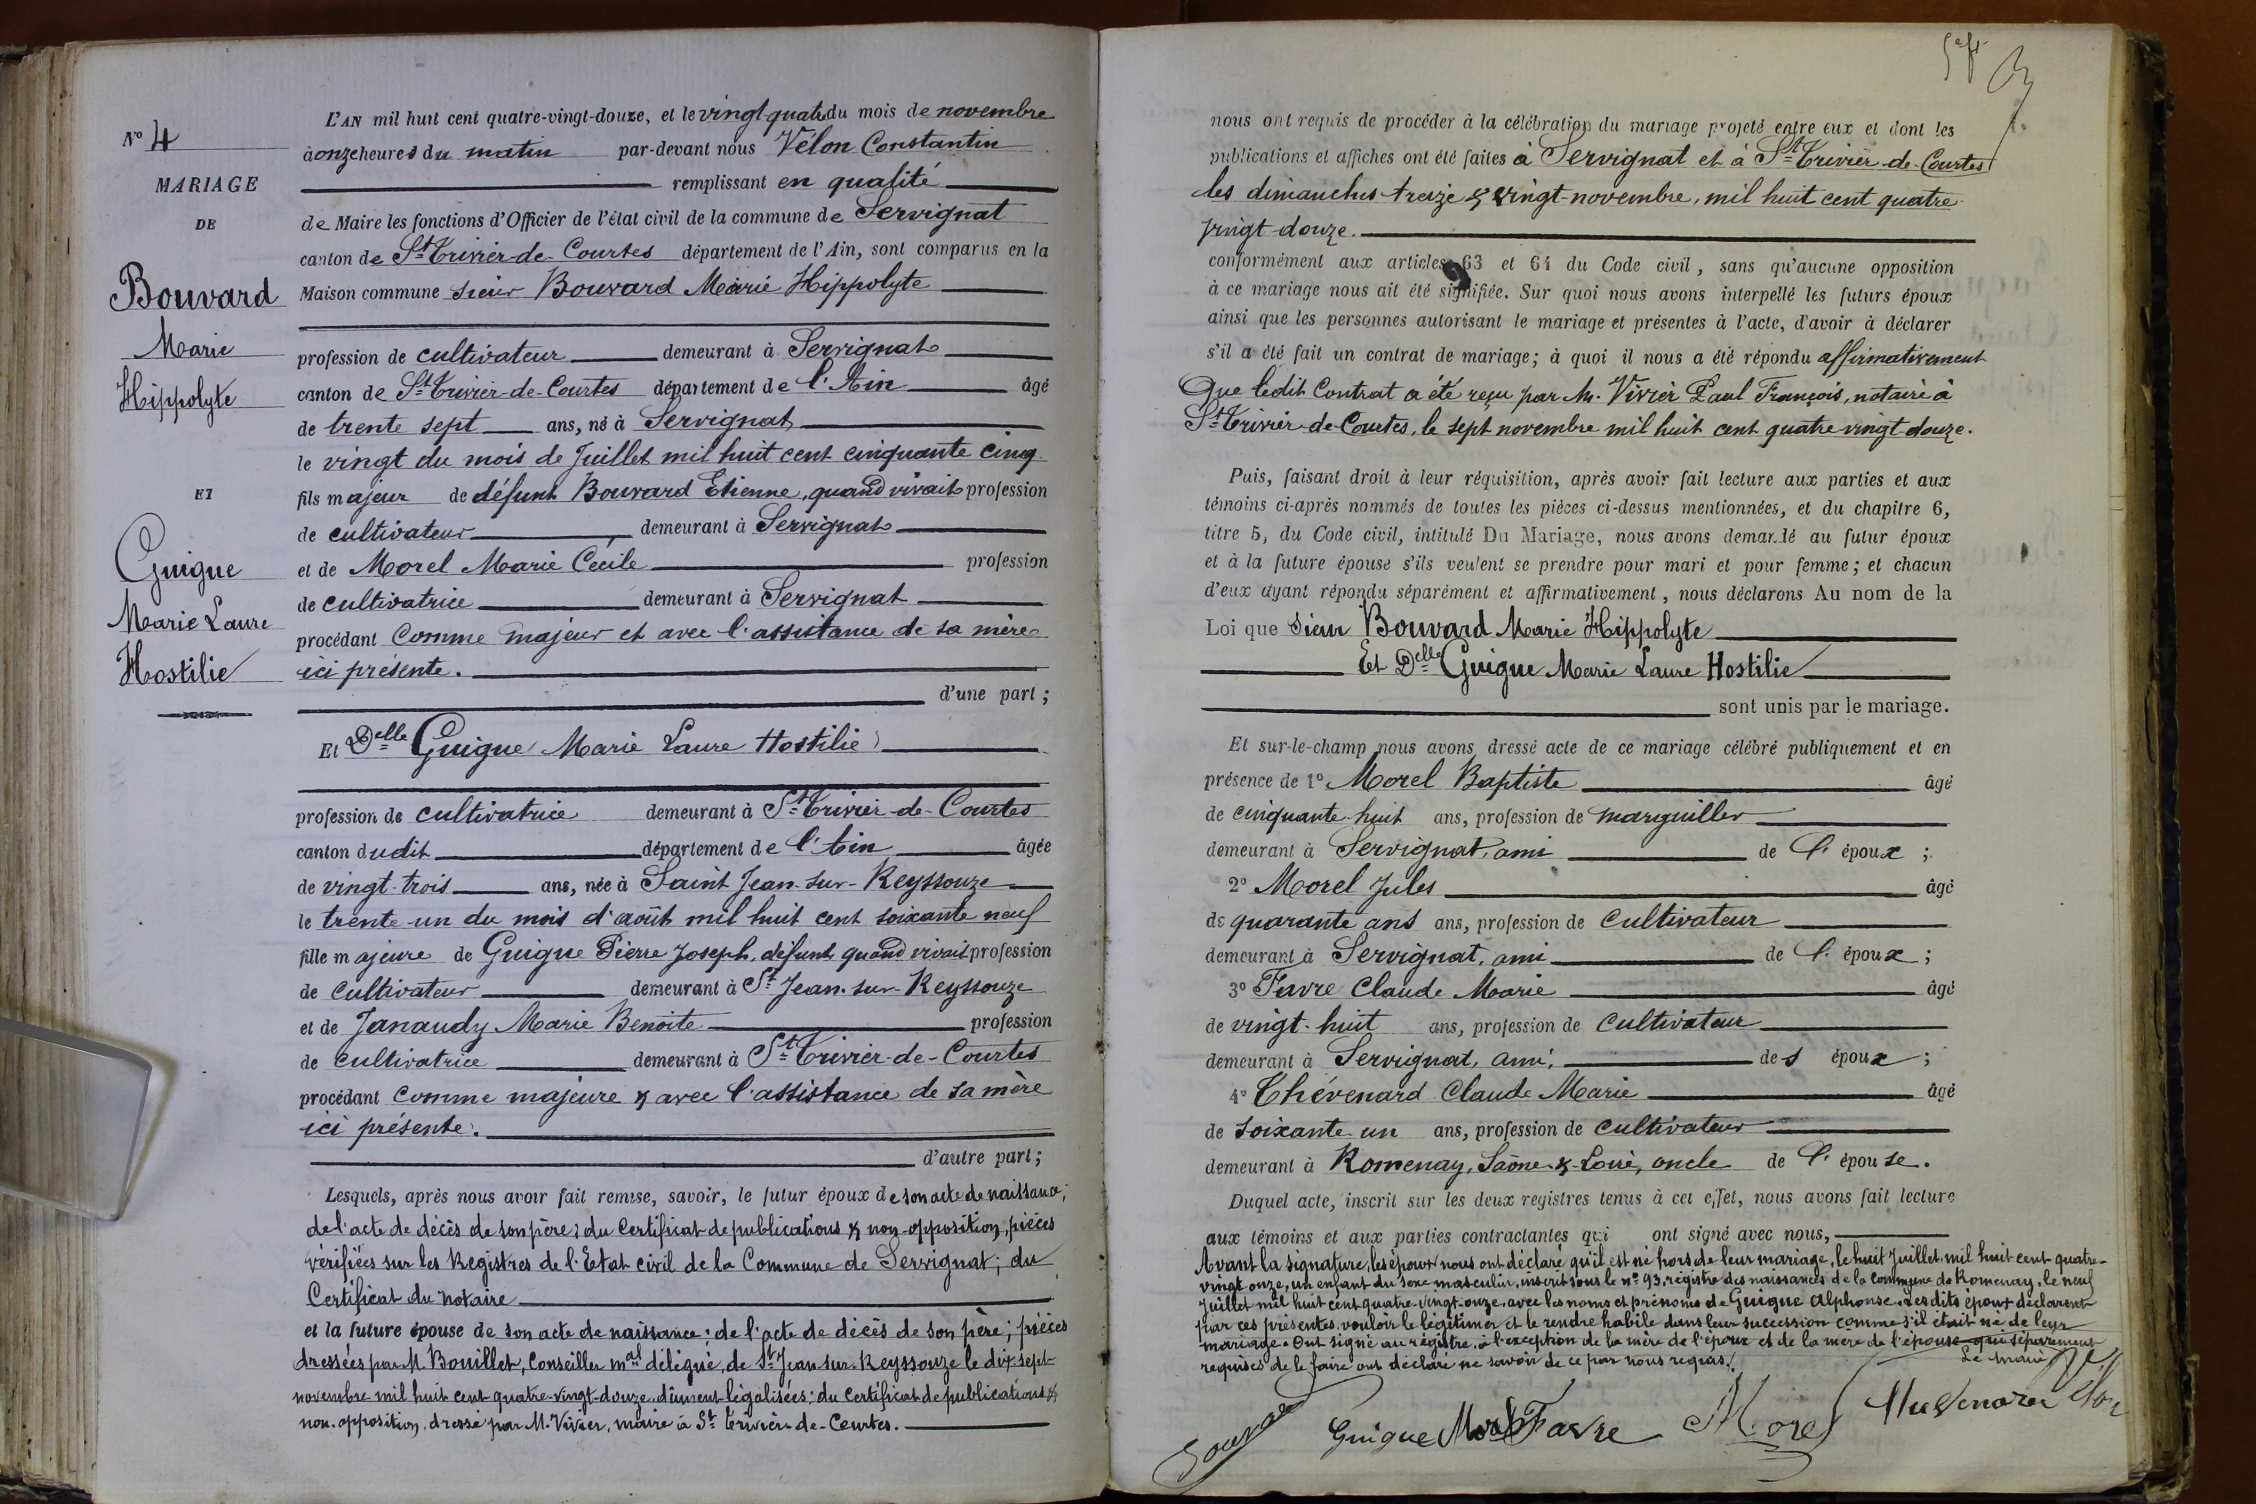 N° 4
MARIAGE
DE
Bouvard
Marie
Hippolyte
ET
Guigue
Marie Laure
Hostilie
L'AN mil huit cent quatre-vingt-douze, et le vingt-quatre du mois de novembre
à onze heures du matin par-devant nous Vélon Constantin
remplissant en qualité
de Maire les fonctions d'Officier de l'état civil de la commune de Servignat
canton de St Trivier-de-Courtes département de l'Ain, sont comparus en la
Maison commune sieur Bouvard Marie Hippolyte
profession de cultivateur demeurant à Servignat
canton de St Trivier-de-Courtes département de l'Ain âgé
de trente sept ans, né à Servignat
le vingt du mois de Juillet mil huit cent cinquante cinq
fils majeur de défunt Bouvard Etienne, quand vivait profession
de cultivateur demeurant à Servignat
et de Morel Marie Cécile profession
de cultivatrice demeurant à Servignat
procédant comme majeur et avec l'assistance de sa mère
ici présente.
d'une part;
Et Delle Guigue Marie Laure Hostilie
profession de cultivatrice demeurant à St Trivier-de-Courtes
canton dudit département de l'Ain âgée
de vingt-trois ans, née à Saint Jean-sur-Reyssouze
le trente-un du mois d'août mil huit cent soixante neuf
fille majeure de Guigue Pierre Joseph, défunt, quand vivait profession
de cultivateur demeurant à St Jean-sur-Reyssouze
et de Janaudy Marie Benoite profession
de cultivatrice demeurant à St Trivier-de-Courtes
procédant comme majeure & avec l'assistance de sa mère
ici présente.
d'autre part;
Lesquels, après nous avoir fait remise, savoir, le futur époux de son acte de naissance;
de l'acte de décès de son père; du certificat de publications & non-opposition, pièces
vérifiées sur les Registres de l'Etat civil de la Commune de Servignat; du
Certificat du notaire
et la future épouse de son acte de naissance; de l'acte de décès de son père; pièces
dressées par M. Bouillet, Conseiller mal délégué, de St Jean-sur-Reyssouze le dix-sept
novembre mil huit cent quatre-vingt-douze, dûment légalisées; du Certificat de publications &
non-opposition, dressé par M. Vivier, maire à St Trivier-de-Courtes.
nous ont requis de procéder à la célébration du mariage projeté entre eux et dont les
publications et affiches ont été faites à Servignat et à St Trivier-de-Courtes
les dimanches treize & vingt-novembre, mil huit cent quatre
vingt-douze.
conformément aux articles 63 et 64 du Code civil, sans qu'aucune opposition
à ce mariage nous ait été signifiée. Sur quoi nous avons interpellé les futurs époux
ainsi que les personnes autorisant le mariage et présentes à l'acte, d'avoir à déclarer
s'il a été fait un contrat de mariage; à quoi il nous a été répondu affirmativement
Que ledit Contrat a été reçu par M. Vivier Paul François, notaire à
St Trivier-de-Courtes, le sept novembre mil huit cent quatre vingt douze.
Puis, faisant droit à leur réquisition, après avoir fait lecture aux parties et aux
témoins ci-après nommés de toutes les pièces ci-dessus mentionnées, et du chapitre 6,
titre 5, du Code civil, intitulé Du Mariage, nous avons demandé au futur époux
et à la future épouse s'ils veulent se prendre pour mari et pour femme; et chacun
d'eux ayant répondu séparément et affirmativement, nous déclarons Au nom de la
Loi que sieur Bouvard Marie Hippolyte
Et Delle Guigue Marie Laure Hostilie
sont unis par le mariage.
Et sur-le-champ nous avons dressé acte de ce mariage célébré publiquement et en
présence de 1° Morel Baptiste âgé
de cinquante-huit ans, profession de marguiller
demeurant à Servignat, ami de l'époux;
2° Morel Jules âgé
de quarante ans ans, profession de cultivateur
demeurant à Servignat, ami de l'époux;
3° Favre Claude Marie âgé
de vingt-huit ans, profession de cultivateur
demeurant à Servignat, ami des époux;
4° Thévenard Claude Marie âgé
de soixante un ans, profession de cultivateur
demeurant à Romenay, Saône-&-Loire, oncle de l'épouse.
Duquel acte, inscrit sur les deux registres tenus à cet effet, nous avons fait lecture
aux témoins et aux parties contractantes qui ont signé avec nous,
Avant la signature, les époux nous ont déclaré qu'il est né hors de leur mariage, le huit Juillet mil huit cent quatre-
vingt-onze, un enfant du sexe masculin, inscrit sous le n° 93, registre des naissances de la commune de Romenay, le neuf
Juillet mil huit cent quatre-vingt-onze, avec les noms et prénoms de Guigue Alphonse. Les dits époux déclarent
par ces présentes vouloir le légitimer et le rendre habile dans leur succession comme s'il était né de leur
mariage. Ont signé au registre, à l'exception de la mère de l'époux et de la mère de l'épouse qui séparément
requises de le faire ont déclaré ne savoir de ce par nous requis.
Le maire
Bouvard Guigue Morel Favre Morel Thévenard Vélon